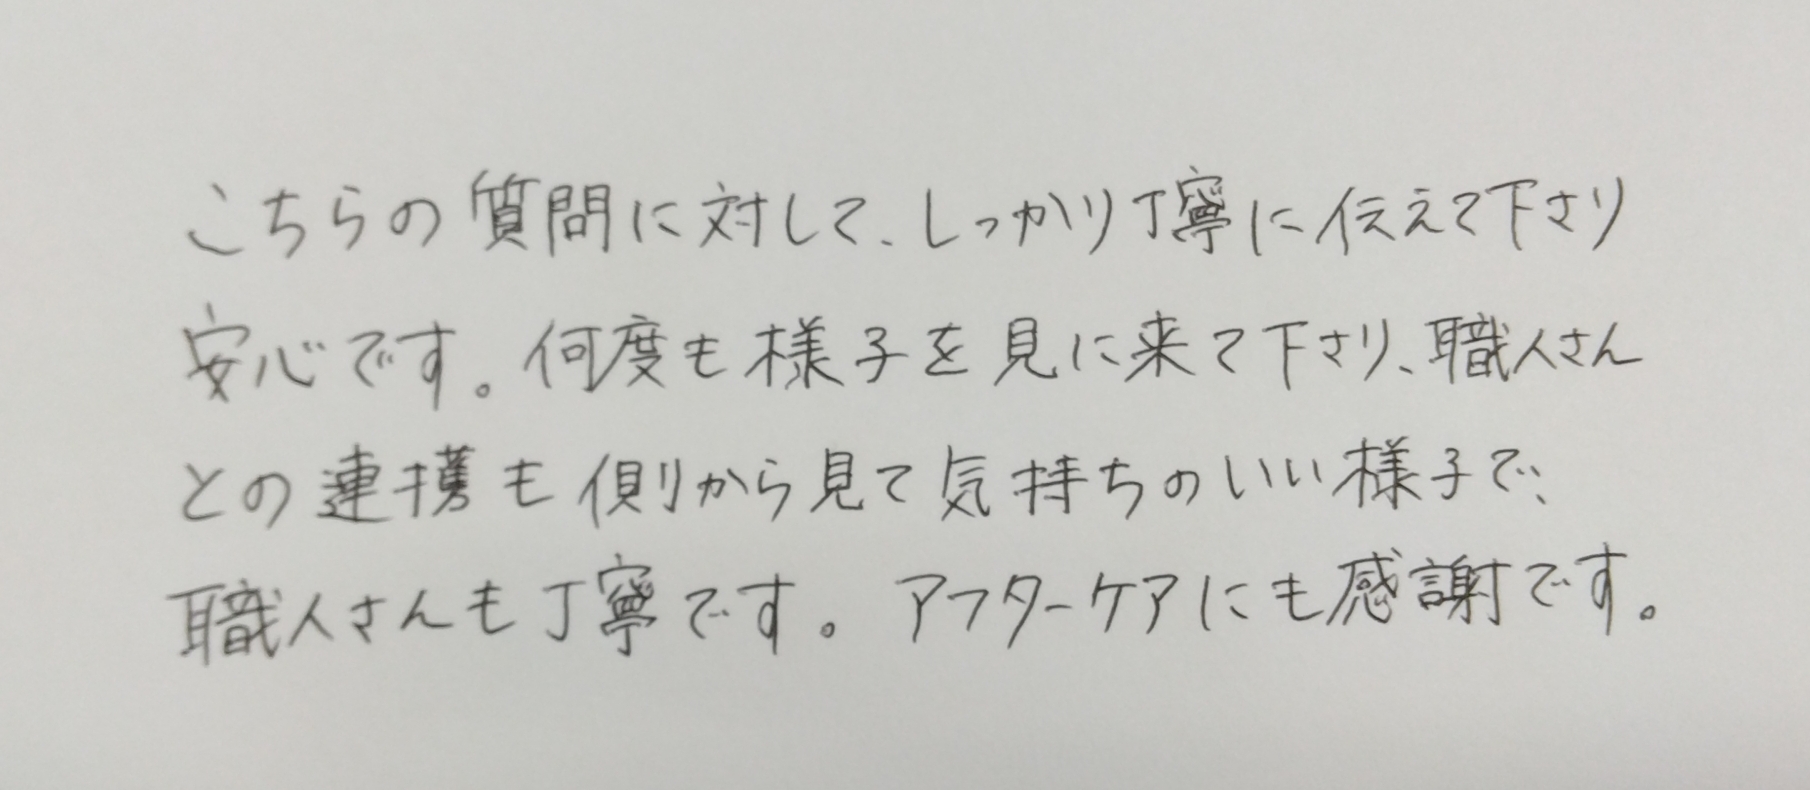 こちらの質問に対して、しっかり丁寧に伝えて下さり
安心です。何度も様子を見に来て下さり、職人さん
との連携も側から見て気持ちのいい様子で、
職人さんも丁寧です。アフターケアにも感謝です。